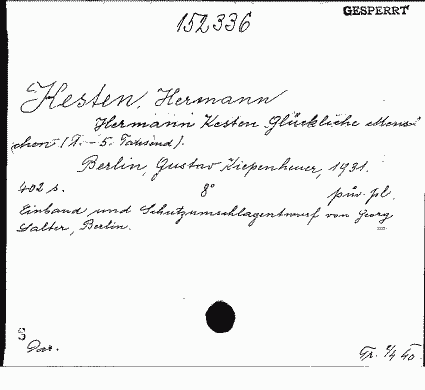 152336
GESPERRT
Kesten, Hermann
Hermann Kesten Glückliche Mens-
chen (1. - 5. Tausend).
Berlin, Gustav Kiepenheuer, 1931.
402 s. 8° pův. pl.
Einband und Schutzumschlagentwurf von Georg
Salter, Berlin.
S
Dar.